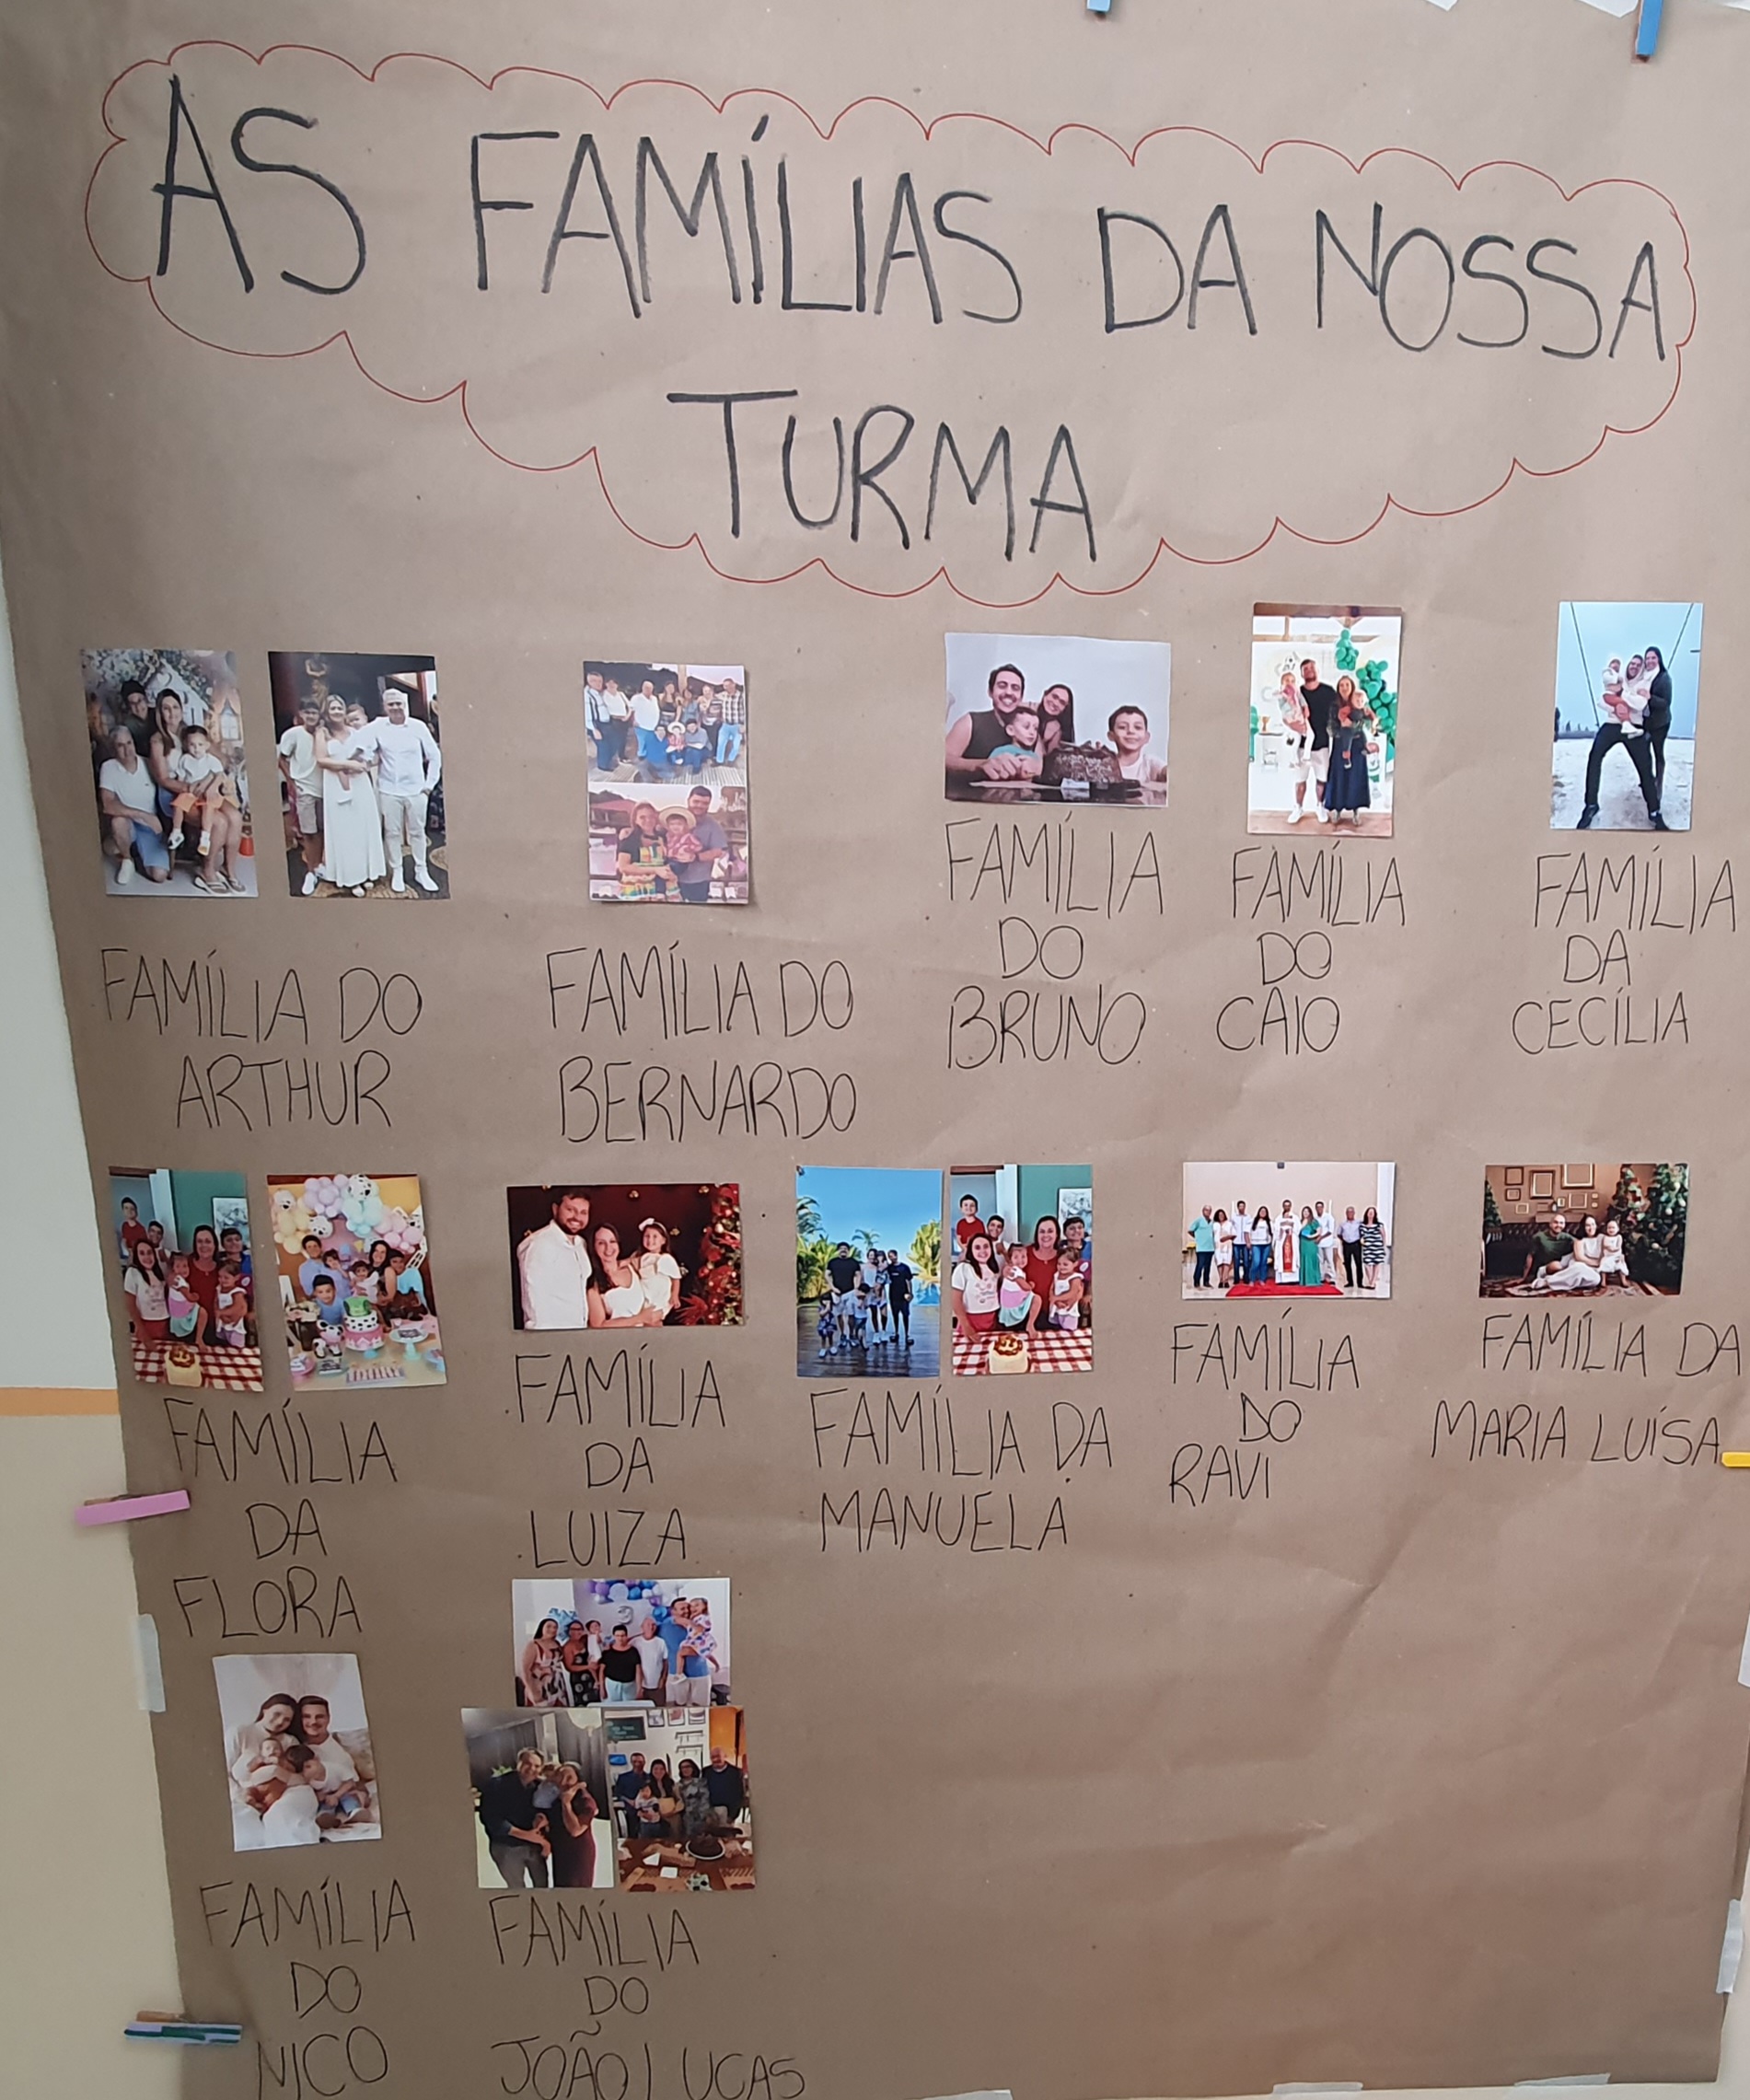 AS FAMÍLIAS DA NOSSA
TURMA
FAMÍLIA DO
ARTHUR
FAMÍLIA DO
BERNARDO
FAMÍLIA
DO
BRUNO
FAMÍLIA
DO
CAIO
FAMÍLIA
DA
CECÍLIA
FAMÍLIA
DA
FLORA
FAMÍLIA
DA
LUIZA
FAMÍLIA DA
MANUELA
FAMÍLIA
DO
RAVI
FAMÍLIA DA
MARIA LUÍSA
FAMÍLIA
DO
NICO
FAMÍLIA
DO
JOÃO LUCAS